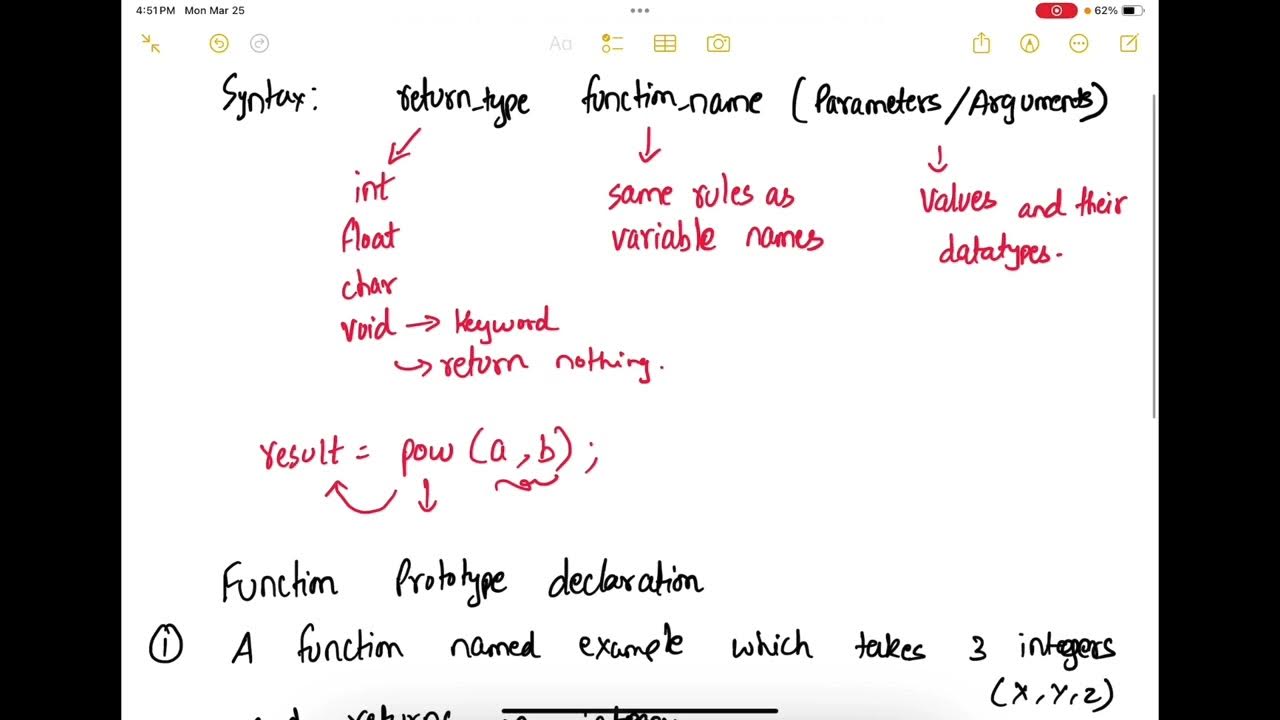 4:51 PM Mon Mar 25
62%
Aa
Syntax: return_type function_name (Parameters/Arguments)
int
float
char
void → keyword
→ return nothing.
same rules as
variable names
values and their
datatypes.
result = pow (a, b);
Function Prototype declaration
① A function named example which takes 3 integers
(x, y, z)